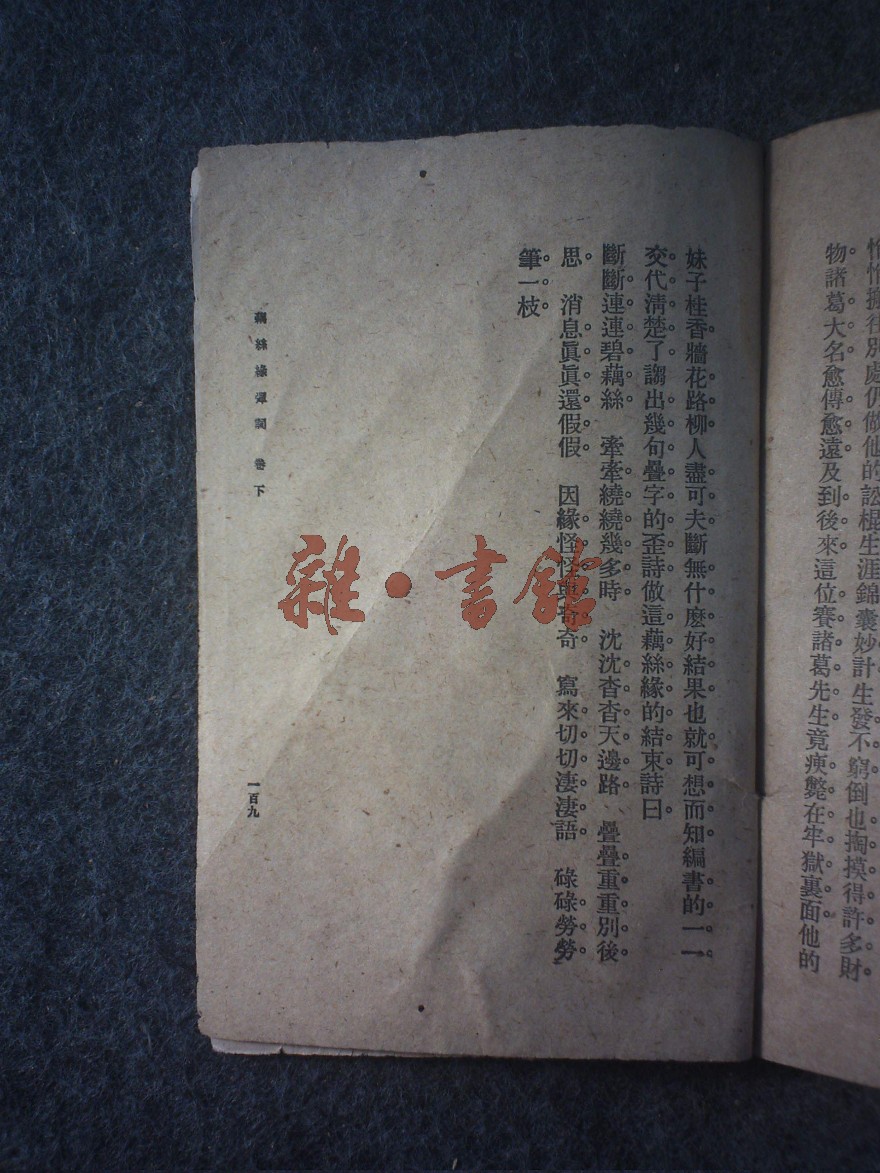 往別處仍做他的訟棍生涯錦囊妙計生發不窮倒也掏摸得許多財
物諸葛大名愈傳愈遠及到後來這位賽諸葛先生竟瘐斃在牢獄裏面他的
妹子桂香牆花路柳人盡可夫斷無什麼好結果也就可想而知編書的一一
交代淸楚了謅出幾句疊字的歪詩做這藕絲緣的結束詩曰
斷斷連連碧藕絲　牽牽繞繞幾多時　沈沈杳杳天邊路　疊疊重重別後
思　消息眞眞還假假　因緣怪怪與奇奇　寫來切切淒淒語　碌碌勞勞
筆一枝
藕絲緣彈詞　卷下
一百九
雜·書館